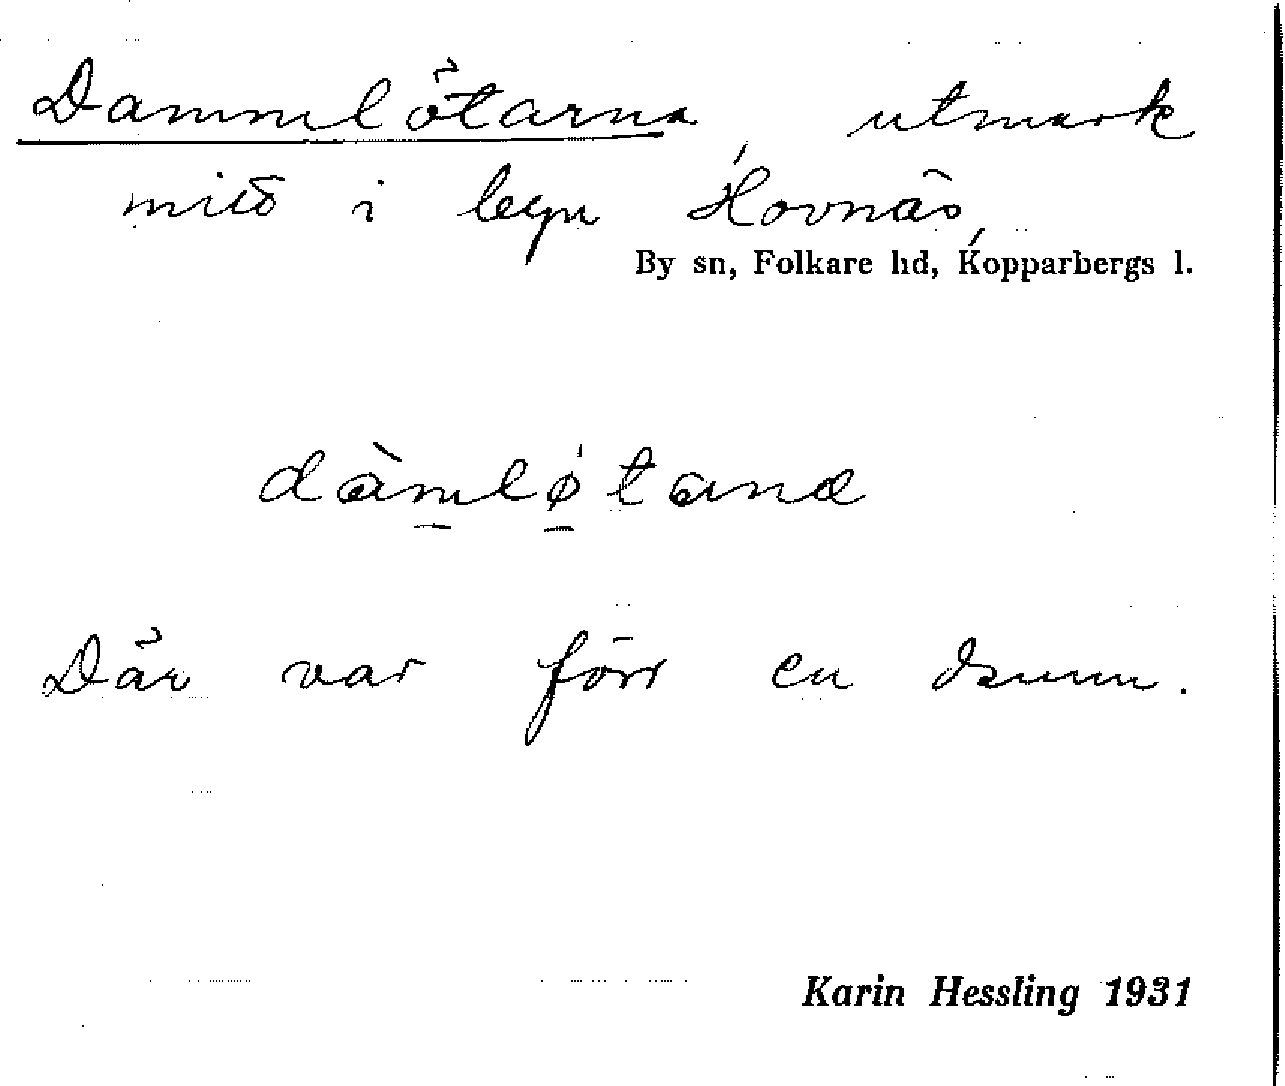 Dammlötarna, utmark
mitt i byn Hovnäs,
By sn, Folkare hd, Kopparbergs l.
dàmlø̀tana
Där var förr en damm.
Karin Hessling 1931